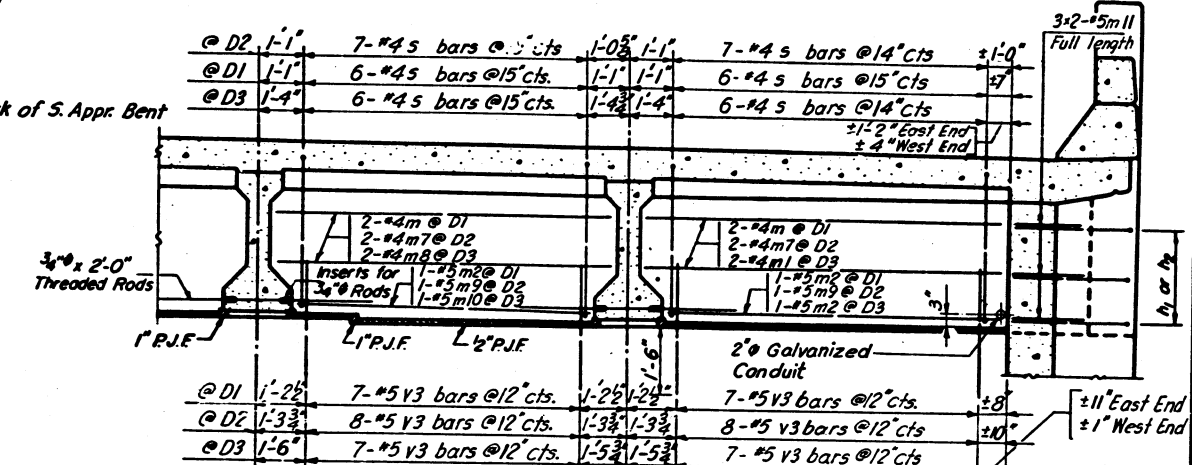 3x2-#5m11
Full length
@ D2 1'-1" 7-#4 s bars @ cts 1'-0⅝" 1'-1" 7-#4 s bars @ 14" cts ±1'-0"
@ D1 1'-1" 6-#4 s bars @15" cts. 1'-1" 1'-1" 6-#4 s bars @15" cts ±7"
@ D3 1'-4" 6-#4 s bars @15" cts. 1'-4¾" 1'-4" 6-#4 s bars @14" cts
k of S. Appr. Bent
±1'-2" East End
±4" West End
2-#4m @ D1
2-#4m7@ D2
2-#4m8@ D3
2-#4m @ D1
2-#4m7@ D2
2-#4m1@ D3
¾"φ x 2'-0"
Threaded Rods
Inserts for
¾"φ Rods
1-#5m2@ D1
1-#5m9@ D2
1-#5m10@ D3
1-#5m2@ D1
1-#5m9@ D2
1-#5m2@ D3
3"
h1 or h2
1" P.J.F.
1" P.J.F.
½" P.J.F.
1'-6"
2"φ Galvanized
Conduit
@ D1 1'-2½" 7-#5 v3 bars @12" cts. 1'-2½" 1'-2½" 7-#5 v3 bars @12" cts. ±8"
@ D2 1'-3¾" 8-#5 v3 bars @12" cts 1'-3¾" 1'-3¾" 8-#5 v3 bars @12" cts ±10"
@ D3 1'-6" 7-#5 v3 bars @12" cts. 1'-5¾" 1'-5¾" 7-#5 v3 bars @12" cts
±11" East End
±1" West End